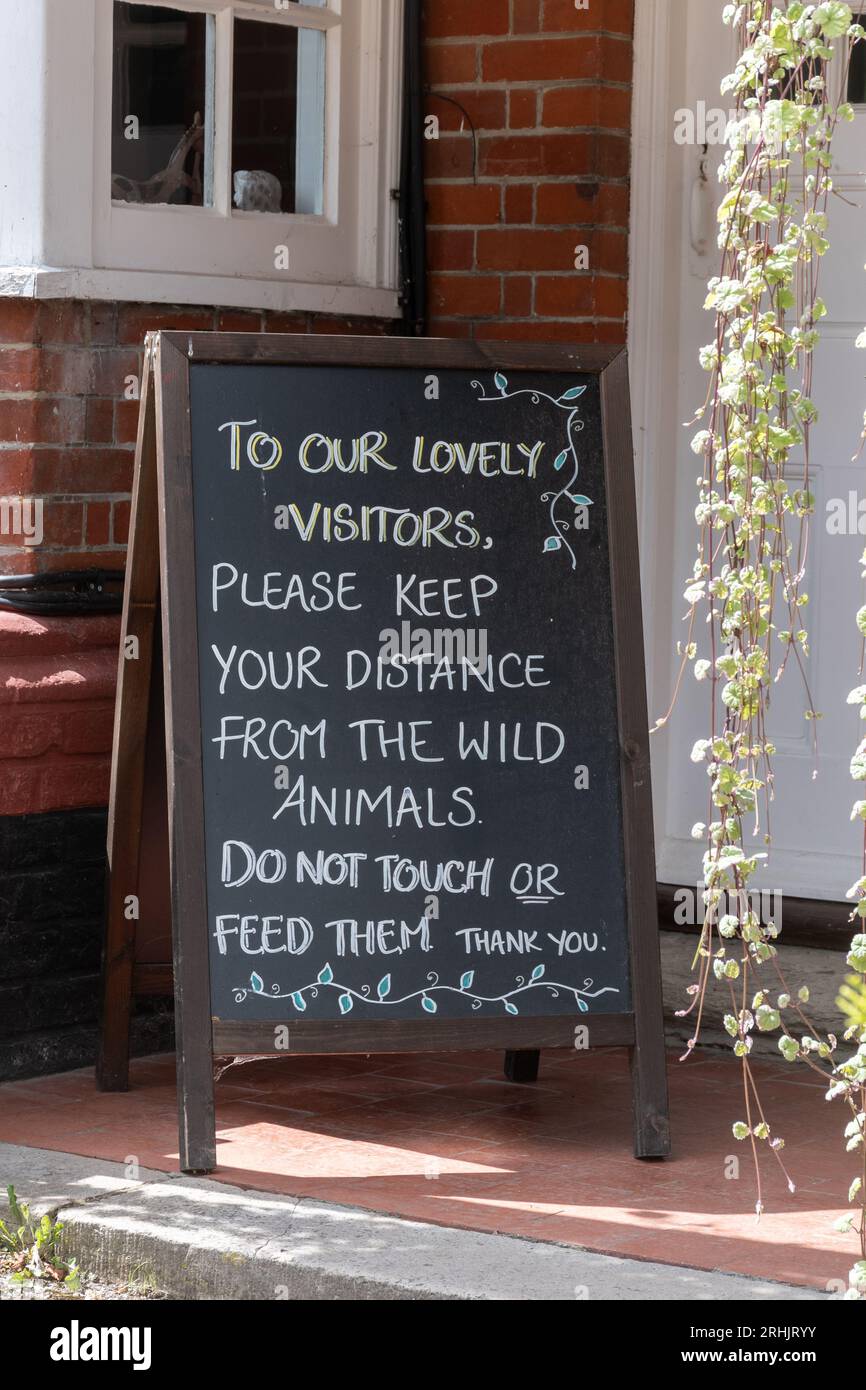 TO OUR LOVELY
VISITORS,
PLEASE KEEP
YOUR DISTANCE
FROM THE WILD
ANIMALS.
DO NOT TOUCH OR
FEED THEM. THANK YOU.
alamy
alamy
Image ID: 2RHJRYY
www.alamy.com